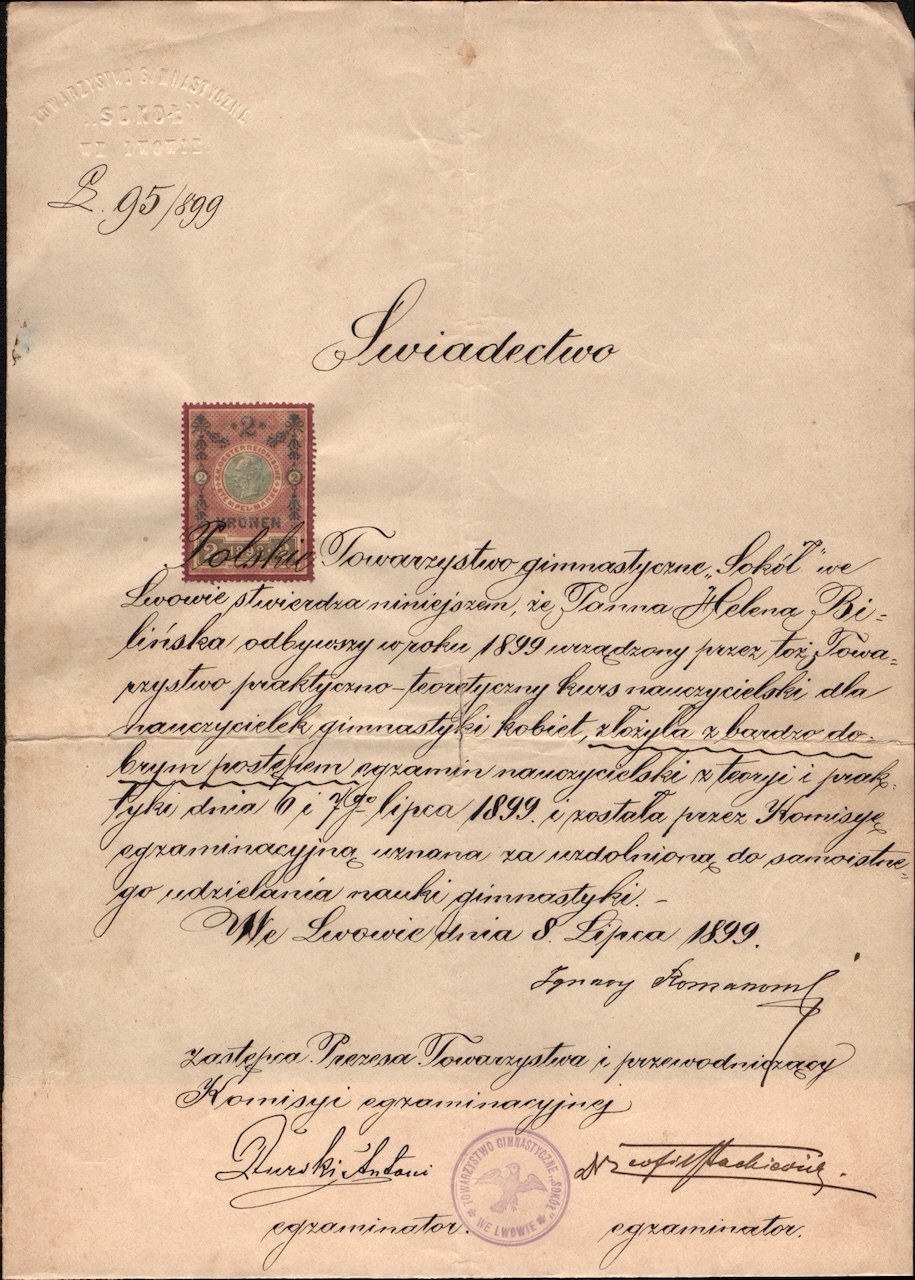 TOWARZYSTWO GIMNASTYCZNE
„SOKÓŁ”
WE LWOWIE
L. 95/899
Świadectwo
2
K.K. OESTERREICHISCHE STEMPEL-MARKE
2 2
KRONEN
2 1898 2
Polskie Towarzystwo gimnastyczne „Sokół” we
Lwowie stwierdza niniejszem, że Panna Helena Bi-
lińska odbywszy w roku 1899 urządzony przez toż Towa-
rzystwo praktyczno-teoretyczny kurs nauczycielski dla
nauczycielek gimnastyki kobiet, złożyła z bardzo do-
brym postępem egzamin nauczycielski z teoryi i prak-
tyki dnia 6 i 7go lipca 1899. i została przez Komisyę
egzaminacyjną uznana za uzdolnioną do samoistne-
go udzielania nauki gimnastyki. –
We Lwowie dnia 8. Lipca 1899.
Ignacy
Zastępca Prezesa Towarzystwa i przewodniczący
Komisyi egzaminacyjnej
Durski Antoni
TOWARZYSTWO GIMNASTYCZNE „SOKÓŁ” WE LWOWIE
egzaminator. egzaminator.